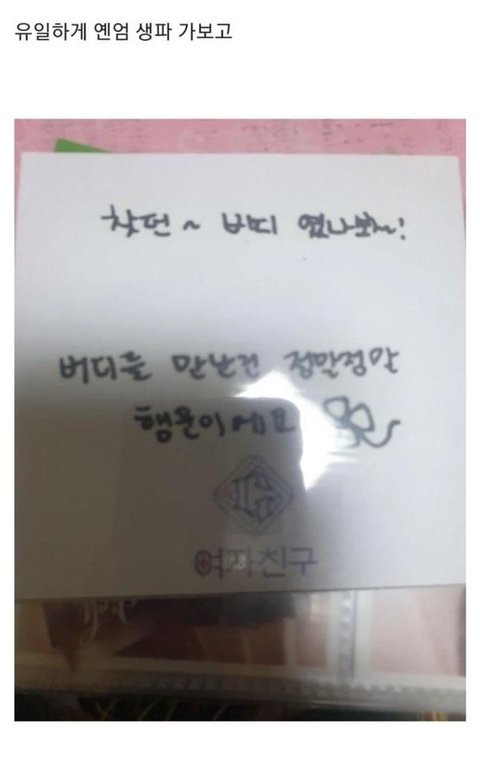 유일하게 옌엄 생파 가보고
찾던 ~ 였나봐~!
버디를 만난건 정말정말
행운이에요
여자친구